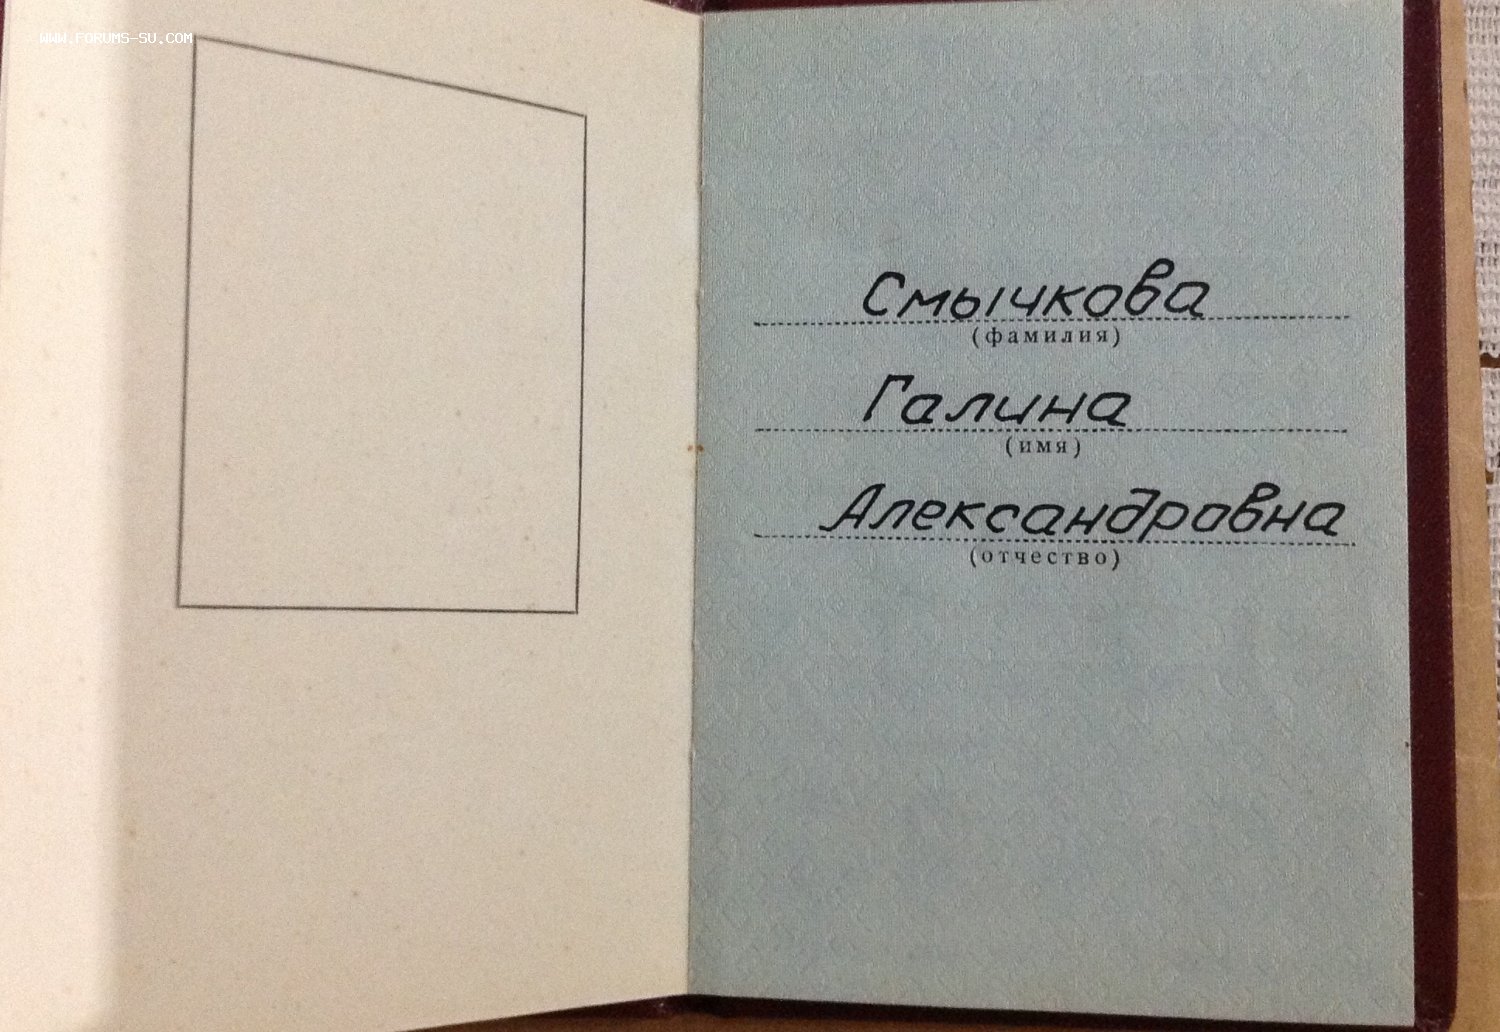 WWW.FORUMS-SU.COM
Смычкова
(фамилия)
Галина
(имя)
Александровна
(отчество)